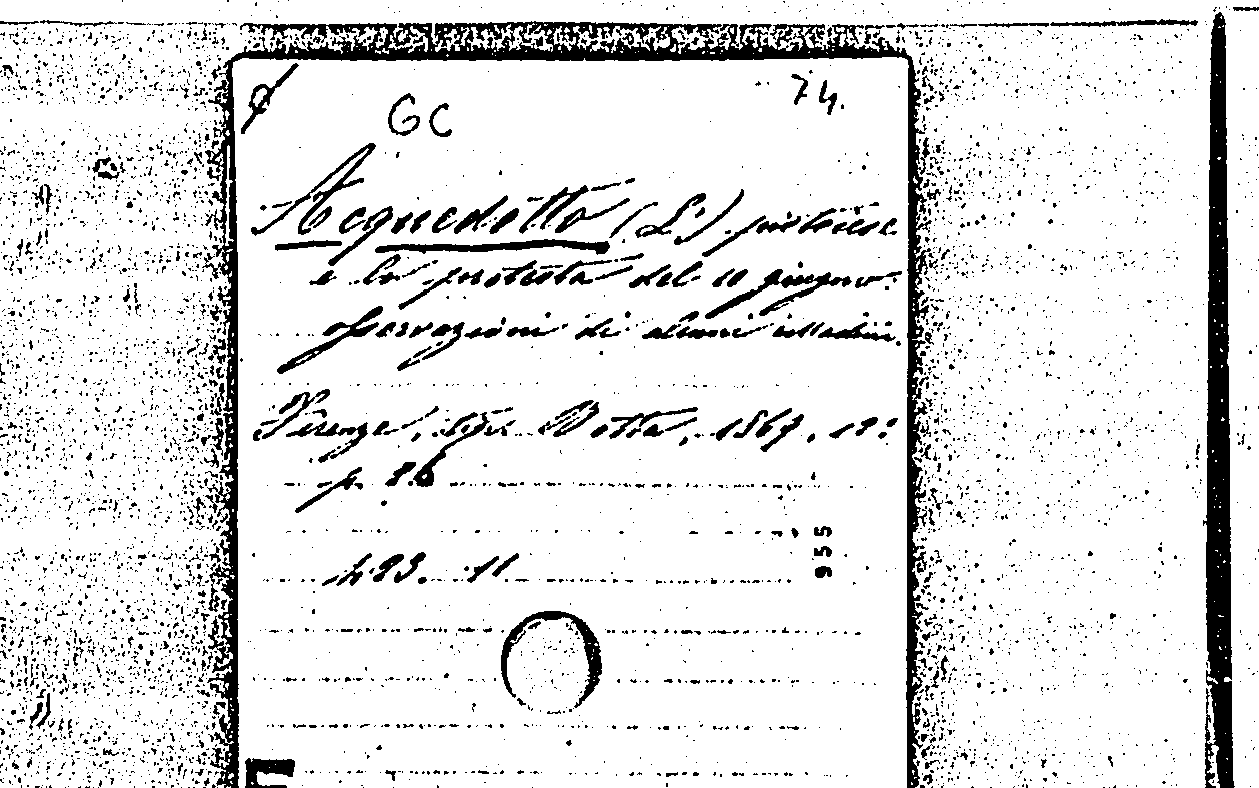 GC 74.
Acquedotto (L') pistoiese
e la protesta del 10 giugno:
osservazioni di alcuni cittadini.
Firenze, tip. Botta, 1867, 12º
p. 26
423. 11
955